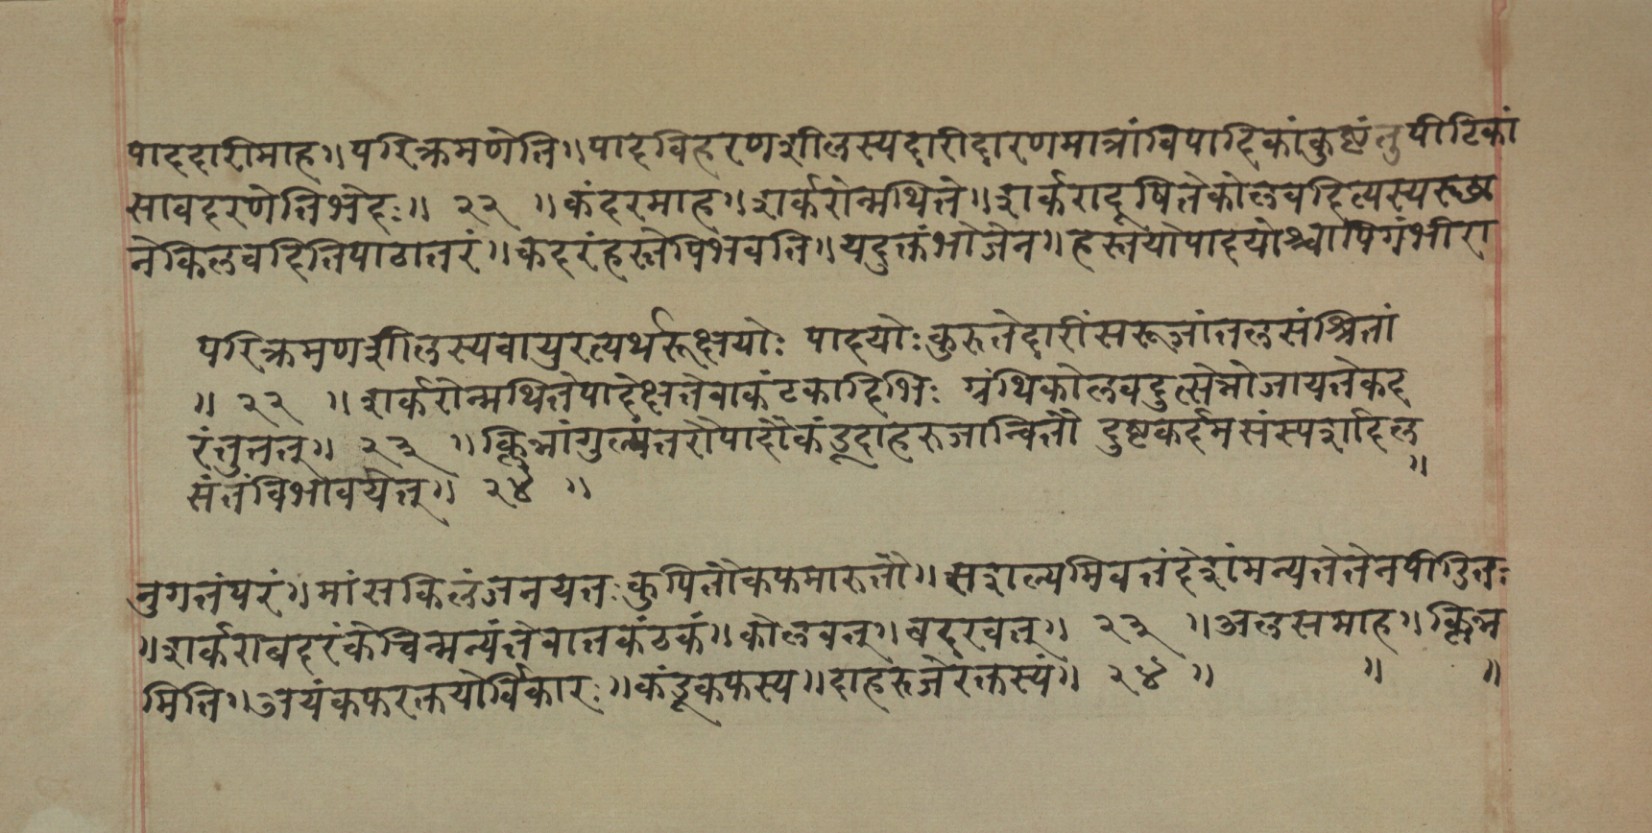 पाददारीमाह॥परिक्रमणेति॥पादविहरणशीलस्यदारीदारणमात्रांविपादिकांकुष्टंतुपीटिकां
सावदरणेतिभेदः॥ २२ ॥कंदरमाह॥शर्करोन्मथिते॥शर्करादूषितेकोलवदित्यस्यस्था
नेकिलवदितिपाठातरं॥कदरंहस्तेपिभवति॥यदुक्तंभोजेन॥हस्तयोपादयोश्चापिगंभीरा
परिक्रमणशीलस्यवायुरत्यर्थरूक्षयोः पादयोःकुरुतेदारींसरूजांतलसंश्रितां
॥ २२ ॥शर्करोन्मथितेपादेक्षतेवाकंटकादिभिः ग्रंथिकोलवदुत्सन्नोजायतेकद
रंतुतत्॥ २३ ॥क्लिन्नांगुल्यंतरौपादौकंडूदाहरुजान्वितौ दुष्टकर्दमसंस्पर्शादल
संतंविभावयेत्॥ २४ ॥ ॥
नुगतंपरं॥मांसकिलंजनयतःकुपितौकफमारुतौ॥सशल्यमिवतंदेशंमन्यतेतेनपीडितः
॥शर्कराबदरंकेचिन्मन्यंतेवातकंठकं॥कोलवत्॥बदरवत्॥ २३ ॥अलसमाह॥क्लिन्न
मिति॥अयंकफरक्तयोर्विकारः॥कंडूकफस्य॥दाहरुजेरक्तस्यं॥ २४ ॥ ॥ ॥